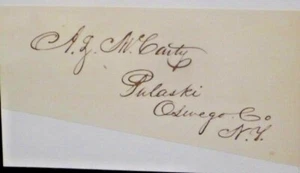 A. Z. McCarty
Pulaski
Oswego Co
N.Y.